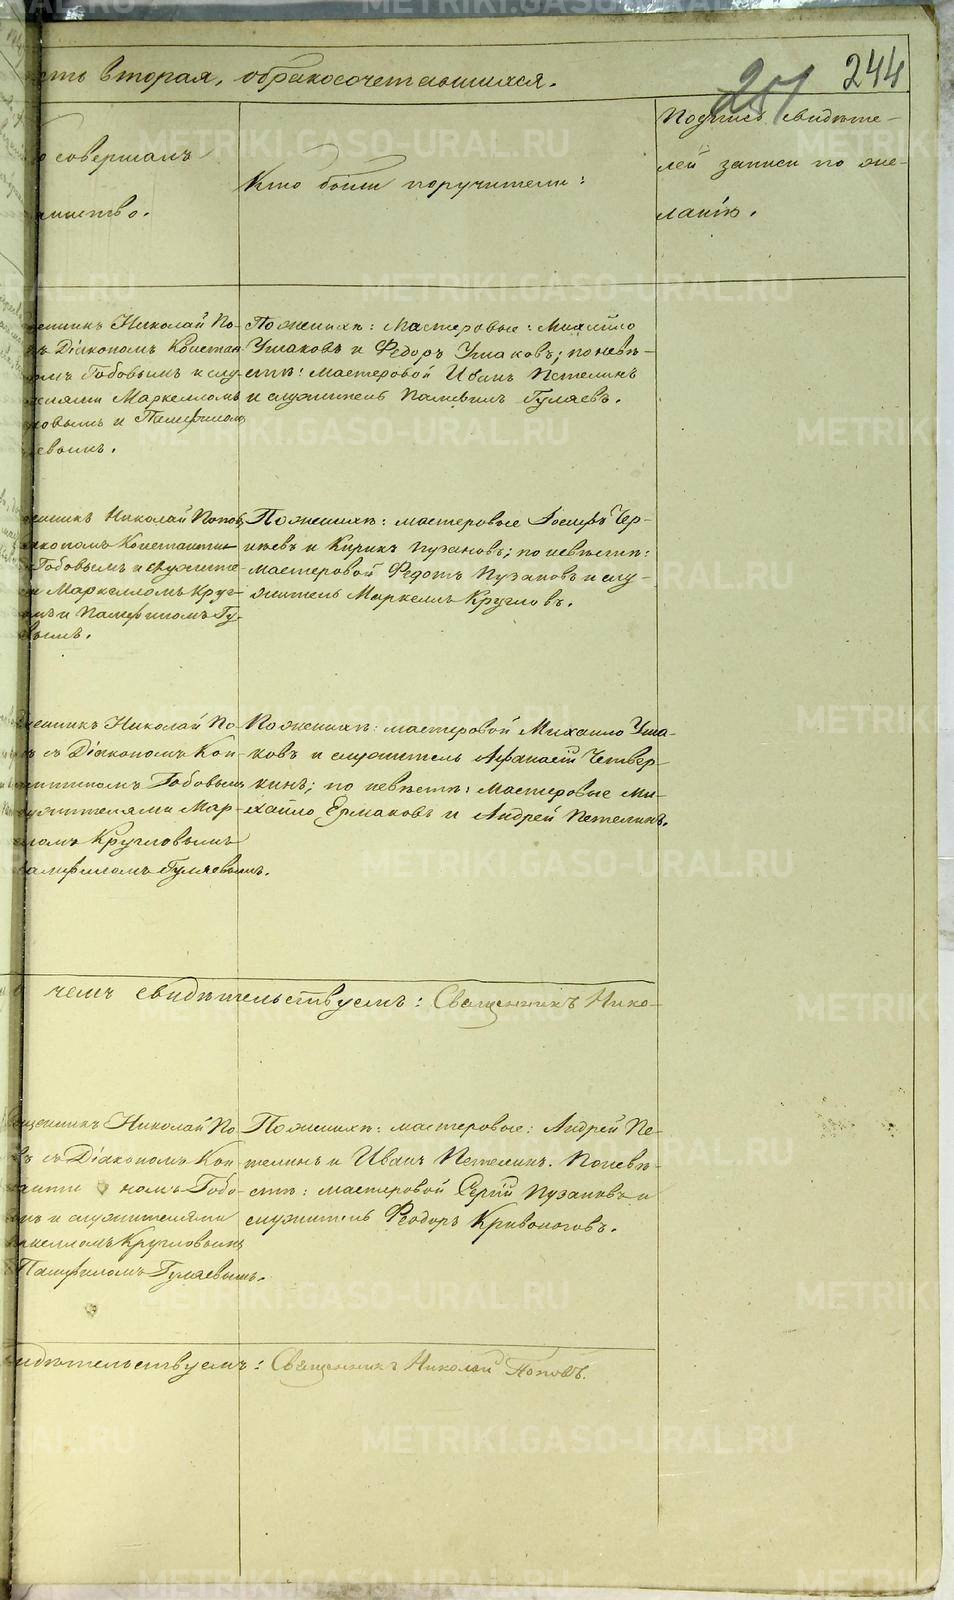 251 244
сть вторая, о бракосочетавшихся.
о совершалъ
таинство.
Кто были поручители:
Подпись свидѣте-
лей записи по же-
ланію.
щенникъ Николай По-
въ Діакономъ Констан
омъ Бобовымъ и слу-
телями Маркелломъ
ловымъ и Памфиломъ
евымъ.
По женихѣ: Мастеровые: Михайло
Ушаковъ и Федоръ Ушаковъ; по невѣ-
стѣ: мастеровой Иванъ Петелинъ
и служитель Памфилъ Гуляевъ.
щенникъ Николай Поповъ
іакономъ Константин
Бобовымъ и служите
и Маркелломъ Круг-
ымъ и Памфиломъ Гу-
евымъ.
По женихѣ: мастеровые Іосифъ Чер-
няевъ и Кирикъ Пузановъ; по невѣстѣ:
мастеровой Федотъ Пузановъ и слу-
житель Маркелъ Кругловъ.
щенникъ Николай По-
въ съ Діакономъ Кон-
стантиномъ Бобовымъ
служителями Мар-
ломъ Кругловымъ
Памфиломъ Гуляевымъ.
По женихѣ: мастеровой Михайло Уша-
ковъ и служитель Афанасій Четвер-
кинъ; по невѣстѣ: мастеровые Ми-
хайло Ермаковъ и Андрей Петелинъ.
чемъ свидѣтельствуемъ: Священникъ Нико-
Священникъ Николай По
въ съ Діакономъ Кон-
станти номъ Бобо-
ымъ и служителями
ркелломъ Кругловымъ
Памфиломъ Гуляевымъ.
По женихѣ: мастеровые: Андрей Пе-
телинъ и Иванъ Петелинъ. По невѣ-
стѣ: мастеровой Сергій Пузановъ и
служитель Феодоръ Кривоноговъ.
идѣтельствуемъ: Священникъ Николай Поповъ.